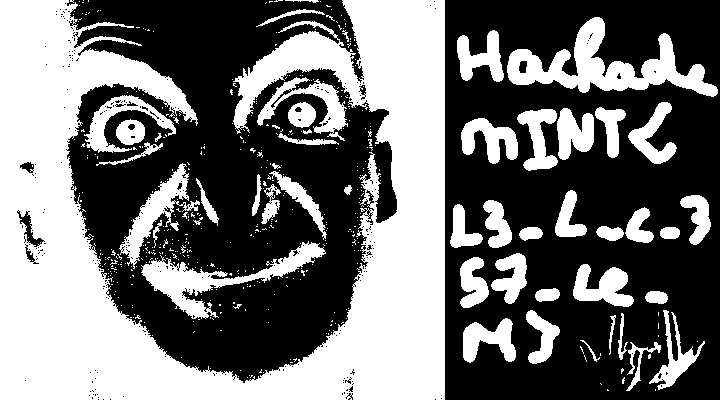 Hackade
mINT{
L3_L_c_3
57_Le_
M}